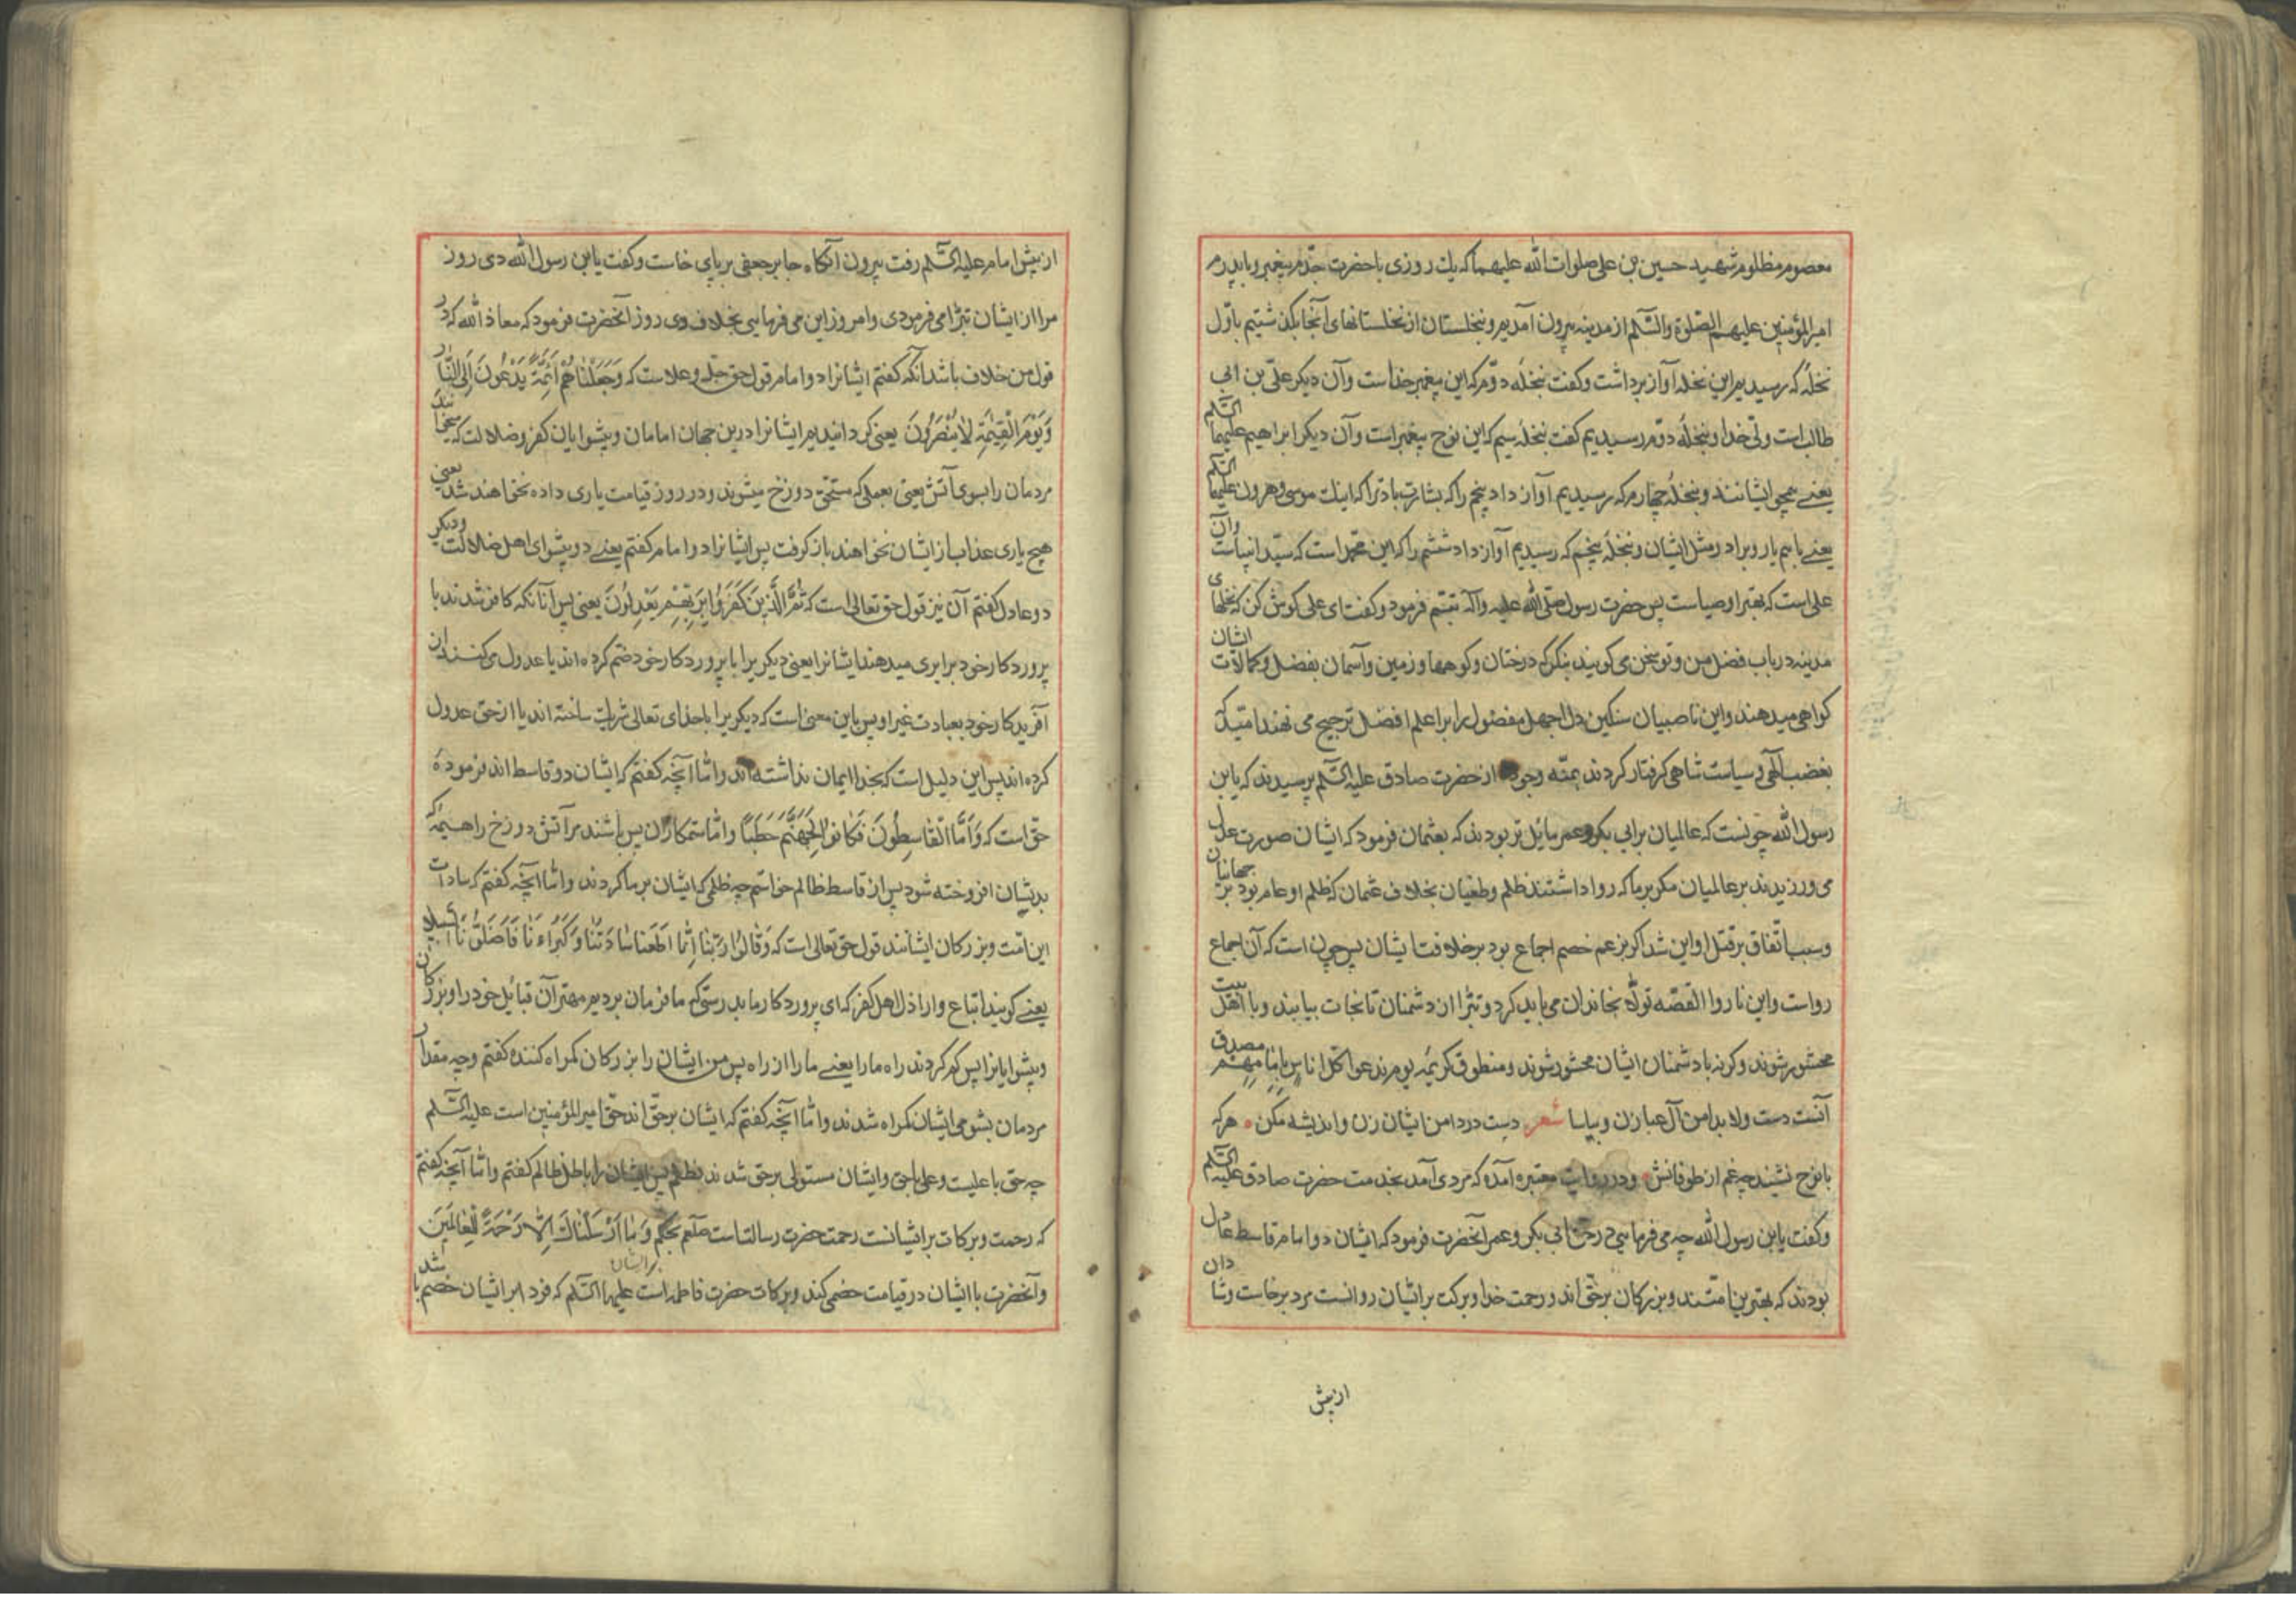 معصوم مظلوم شهید حسین بن علی صلوات الله علیهما که یک روزی با حضرت جدّم پیغمبر و با پدرم
امیرالمؤمنین علیهم الصّلوة والسّلم از مدینه بیرون آمدیم و بنخلستان از نخلستانهای آنجا بگذشتیم باوّل
نخلهٔ که رسیدیم این نخله آواز برداشت و گفت بنخلهٔ دوّم که این پیغمبر خداست وآن دیکر علی بن ابی
طالب است ولی خدا و بنخلهٔ دوّم رسیدیم گفت بنخلهٔ سیم که این نوح پیغمبر است وآن دیکر ابراهیم علیهما السّلم
یعنے همچو ایشانند و بنخلهٔ چهارم که رسیدیم آواز داد پنجم را که بشارت باد ترا که اینک موسی و هرون علیهما السّلم
یعنے باهم یار و برادر مثل ایشان و بنخلهٔ پنجم که رسیدیم آواز داد ششم را که این محمّد است که سیّد انبیاست وآن
علی است که بهتر اوصیاست پس حضرت رسول صلّی الله علیه وآله تبسّم فرمود و گفت ای علی گوش کن که نخلهای
مدینه در باب فضل من و تو سخن می گویند بنکر که درختان و کوهها و زمین و آسمان بفضل و کمالات ایشان
کواهی میدهند و این ناصبیان سنکین دل اجهل مفضول را بر اعلم افضل ترجیح می نهند امّید که
بغضب الهی و سیاست شاهی کرفتار کردند بمنّه وجوده از حضرت صادق علیه السّلم پرسیدند که یابن
رسول الله چونست که عالمیان بر ابی بکر و عمر مایل تر بودند که بعثمان فرمود که ایشان صورت عدل
می ورزیدند بر عالمیان مکر بر ما که روا داشتند ظلم و طغیان بخلاف عثمان که ظلم او عام بود بر جهانیان
و سبب اتّفاق بر قتل او این شد اکر بزعم خصم اجماع بود بر خلافت ایشان پس چون است که آن اجماع
رواست و این ناروا القصّه تولّا بخاندان می باید کرد و تبرّا از دشمنان تا نجات بیابند و با اهل بیت
محشور شوند و کرنه با دشمنان ایشان محشور شوند و منطوق کریمهٔ یوم ندعوا کل اناس بامامهم مصدق
آنست دست ولا بدامن آل عبا زن و بیاسا شعر دست در دامن ایشان زن و اندیشه مکن هر که
با نوح نشیند چه غم از طوفانش و در روایت معتبره آمده که مردی آمد بخدمت حضرت صادق علیه السّلم
و گفت یابن رسول الله چه می فرمایی در حق ابی بکر و عمر آنحضرت فرمود که ایشان دو امام قاسط عادل
بودند که بهترین امّتند و بزرکان بر حقّ اند و رحمت خدا و برکت بر ایشان روانست مرد برخاست و شادان
از پیش
از پیش امام علیه السّلم رفت بیرون آنکاه جابر جعفی بر پای خاست و گفت یابن رسول الله دی روز
مرا از ایشان تبرّا می فرمودی و امروز این می فرمایی بخلاف دی روز آنحضرت فرمود که معاذ الله که در
قول من خلاف باشد آنکه گفتم ایشانرا دو امام قول حق جلّ و علاست که وَجَعَلْنَاهُمْ أَئِمَّةً يَدْعُونَ إِلَى النَّارِ
وَيَوْمَ الْقِيٰمَةِ لَا يُنْصَرُونَ یعنی کردانیدیم ایشانرا درین جهان امامان و پیشوایان کفر و ضلالت که میخوانند
مردمان را بسوی آتش یعنی بعملی که مستحق دوزخ میشوند و در روز قیامت یاری داده نخواهند شد یعنی
هیچ یاری عذاب از ایشان نخواهند باز کرفت پس ایشانرا دو امام گفتم یعنے دو پیشوای اهل ضلالت و دیکر
دو عادل گفتم آن نیز قول حق تعالی است که ثُمَّ الَّذِينَ كَفَرُوا بِرَبِّهِمْ يَعْدِلُونَ یعنی پس آنانکه کافر شدند با
پروردکار خود برابری میدهند ایشانرا یعنی دیکریرا با پروردکار خود ضم کرده اند یا عدول می کنند از
آفریدکار خود بعبادت غیر او پس باین معنی است که دیکریرا با خدای تعالی شریک ساخته اند یا از حق عدول
کرده اند پس این دلیل است که بخدا ایمان نداشته اند وامّا آنچه گفتم که ایشان دو قاسط اند فرمودهٔ
حقّ است که وَأَمَّا الْقَاسِطُونَ فَكَانُوا لِجَهَنَّمَ حَطَبًا وامّا ستمکاران پس باشند بر آتش دوزخ را هیمه که
بدیشان افروخته شود پس از قاسط ظالم خواستم چه ظلمی که ایشان بر ما کردند وامّا آنچه گفتم که سادات
این امّت و بزرکان ایشانند قول حق تعالی است که وَقَالُوا رَبَّنَا إِنَّا أَطَعْنَا سَادَتَنَا وَكُبَرَاءَنَا فَأَضَلُّونَا السَّبِيلَا
یعنے کویند اتباع و اراذل اهل کفر که ای پروردکار ما بدرستی که ما فرمان بردیم مهتران قبایل خود را و بزرکان
و پیشوایانرا پس کم کردند راه ما را یعنے ما را از راه پس من ایشان را بزرکان کمراه کننده گفتم و چه مقدار
مردمان بشومی ایشان کمراه شدند وامّا آنچه گفتم که ایشان بر حقّ اند حق امیرالمؤمنین است علیه السّلم
چه حق با علیست و علی با حق و ایشان مستولی بر حق شدند بظلم پس ایشان را باطل ظالم گفتم وامّا آنچه گفتم
که رحمت و برکات بر ایشانست رحمت حضرت رسالتست صلعم بحکم وَمَا أَرْسَلْنَاكَ إِلَّا رَحْمَةً لِلْعَالَمِينَ
و آنحضرت با ایشان در قیامت خصمی کند و برکات حضرت فاطمه است علیها السّلم که فردا بر ایشان خصم باشد
بر ایشان